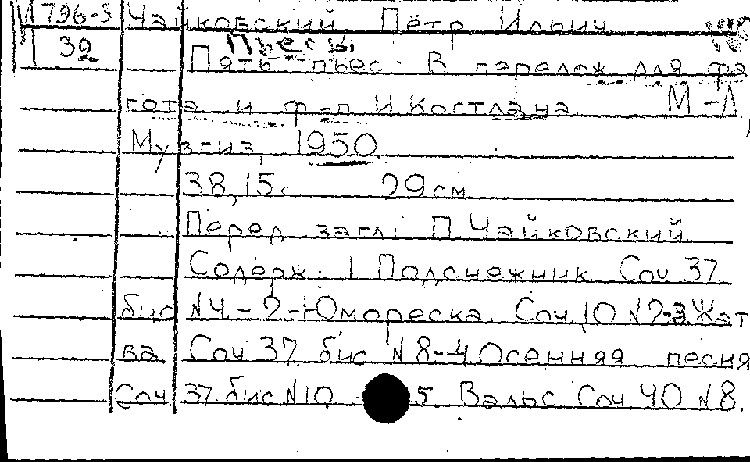 И 796-3 Чайковский Пётр Ильич
32 Пьесы
Пять пьес. В перелож для фа
гота и ф-п И Костлана М-Л,
Музгиз, 1950
38, 15. 29 см
Перед загл: П Чайковский
Содерж. 1 Подснежник Соч 37
бис №4.-2-Юмореска. Соч. 10 №2-3 Жат
ва Соч 37 бис №8-4 Осенняя песня
Соч 37 бис №10 5 Вальс Соч 40 №8.